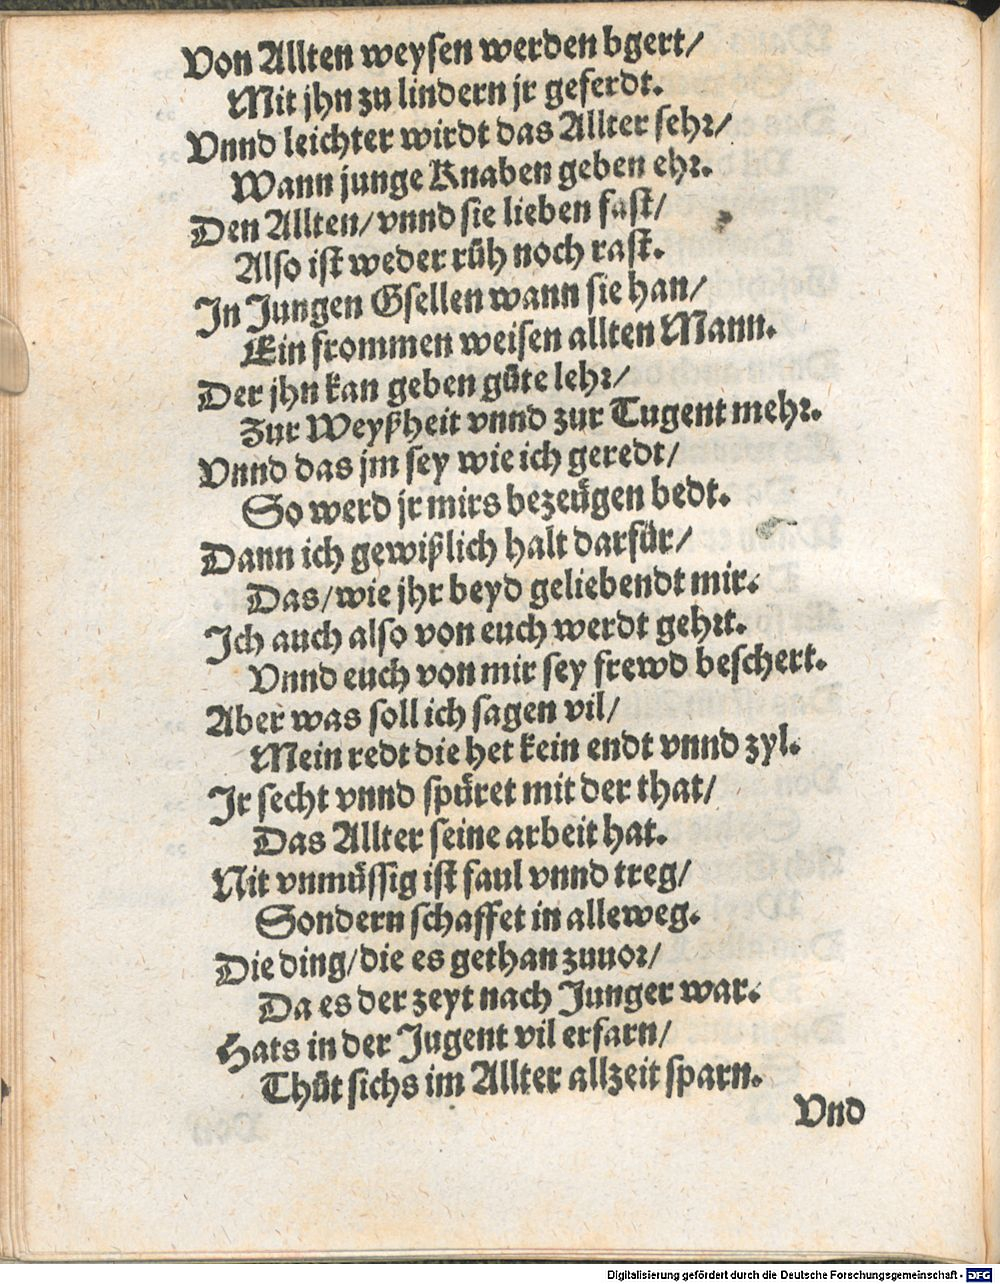 Von Allten weysen werden bgert/
Mit jhn zu lindern jr geferdt.
Vnnd leichter wirdt das Allter sehr/
Wann junge Knaben geben ehr.
Den Allten/ vnnd sie lieben fast/
Also ist weder růh noch rast.
In Jungen Gsellen wann sie han/
Ein frommen weisen allten Mann.
Der jhn kan geben gůte lehr/
Zur Weyßheit vnnd zur Tugent mehr.
Vnnd das jm sey wie ich geredt/
So werd jr mirs bezeügen bedt.
Dann ich gewißlich halt darfür/
Das/ wie jhr beyd geliebendt mir.
Ich auch also von euch werdt gehrt.
Vnnd euch von mir sey frewd beschert.
Aber was soll ich sagen vil/
Mein redt die het kein endt vnnd zyl.
Jr secht vnnd spüret mit der that/
Das Allter seine arbeit hat.
Nit vnmüssig ist faul vnnd treg/
Sondern schaffet in alleweg.
Die ding/ die es gethan zuuor/
Da es der zeyt nach Junger war.
Hats in der Jugent vil erfarn/
Thůt sichs im Allter allzeit sparn.
Vnd
Digitalisierung gefördert durch die Deutsche Forschungsgemeinschaft - DFG